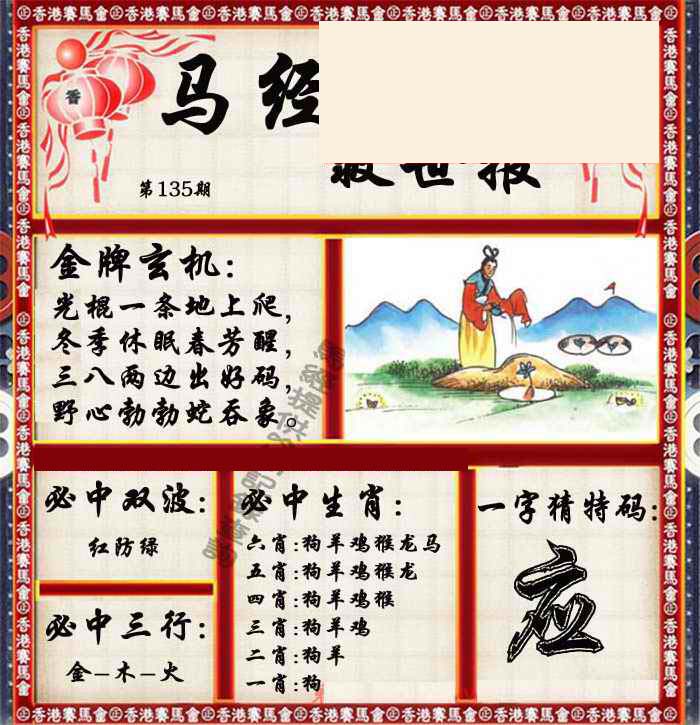 香港賽馬會
马经
救世报
第135期
金牌玄机:
光棍一条地上爬,
冬季休眠春芳醒,
三八两边出好码,
野心勃勃蛇吞象。
必中双波:
红防绿
必中三行:
金-木-火
必中生肖:
六肖:狗羊鸡猴龙马
五肖:狗羊鸡猴龙
四肖:狗羊鸡猴
三肖:狗羊鸡
二肖:狗羊
一肖:狗
一字猜特码:
应